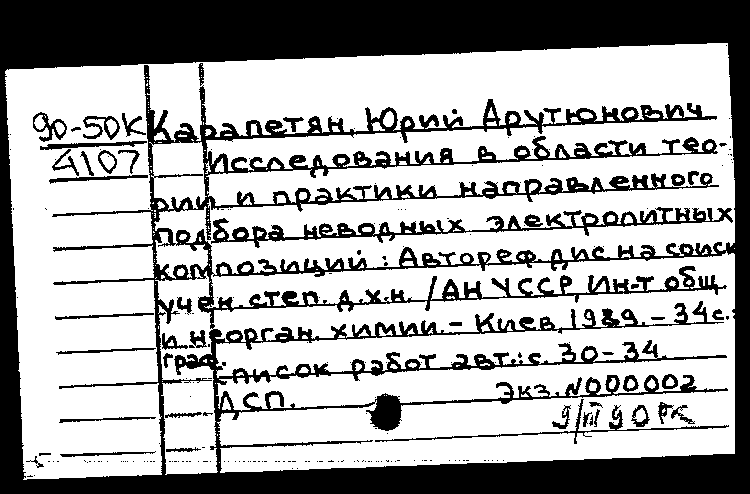 90-50К Карапетян, Юрий Арутюнович
4107 Исследования в области тео-
рии и практики направленного
подбора неводных электролитных
композиций: Автореф. дис. на соиск
учен. степ. д.х.н. / АН УССР, Ин-т общ.
и неорган. химии. - Киев, 1989. - 34 с.:
граф.
Список работ авт.: с. 30-34.
ДСП. Экз. N000002
9/III 90 РК